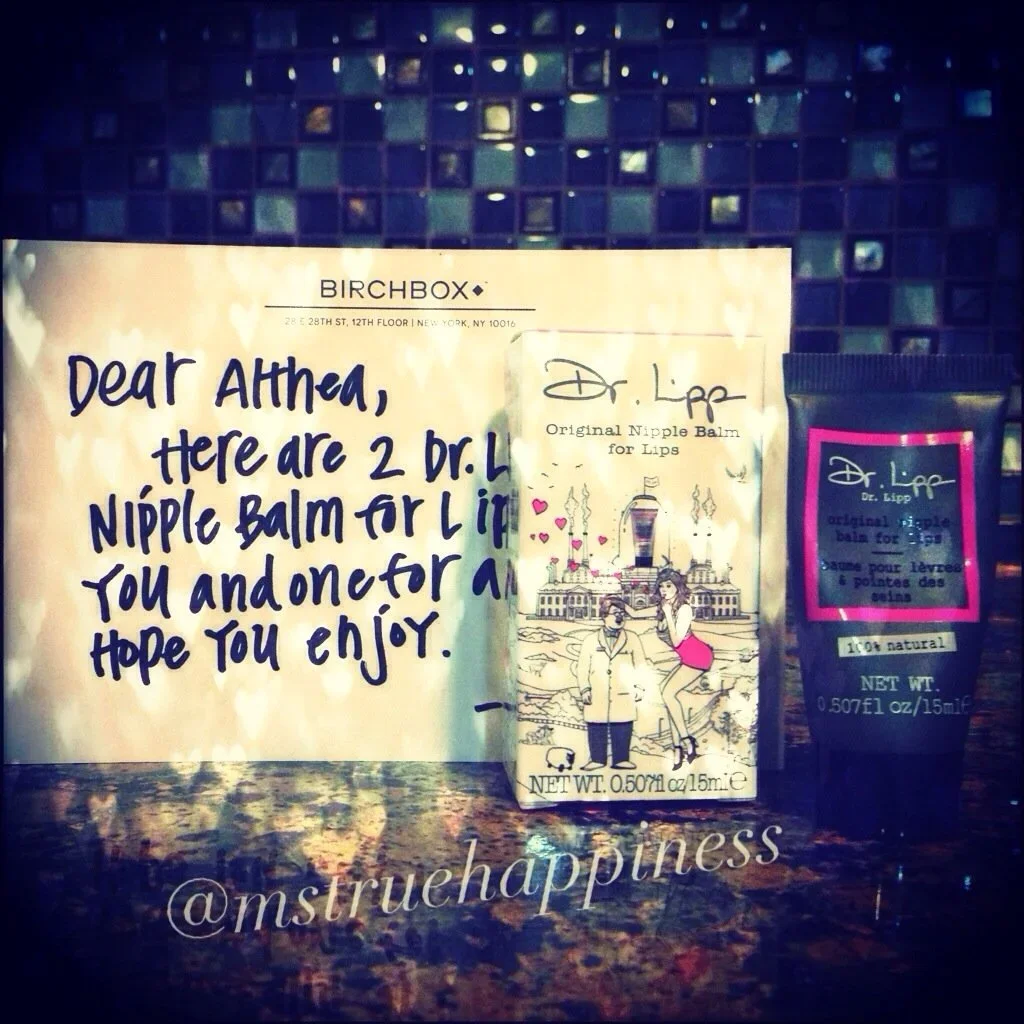 BIRCHBOX
28 E 28TH ST, 12TH FLOOR | NEW YORK, NY 10016
Dear Althea,
Here are 2 Dr. L
Nipple Balm for Lip
You and one for a
Hope You enjoy.
Dr. Lipp
Original Nipple Balm
for Lips
NET WT. 0.507fl oz/15ml e
Dr. Lipp
Dr. Lipp
original nipple
balm for lips
baume pour lèvres
& pointes des
seins
100% natural
NET WT.
0.507fl oz/15ml e
@mstruehappiness